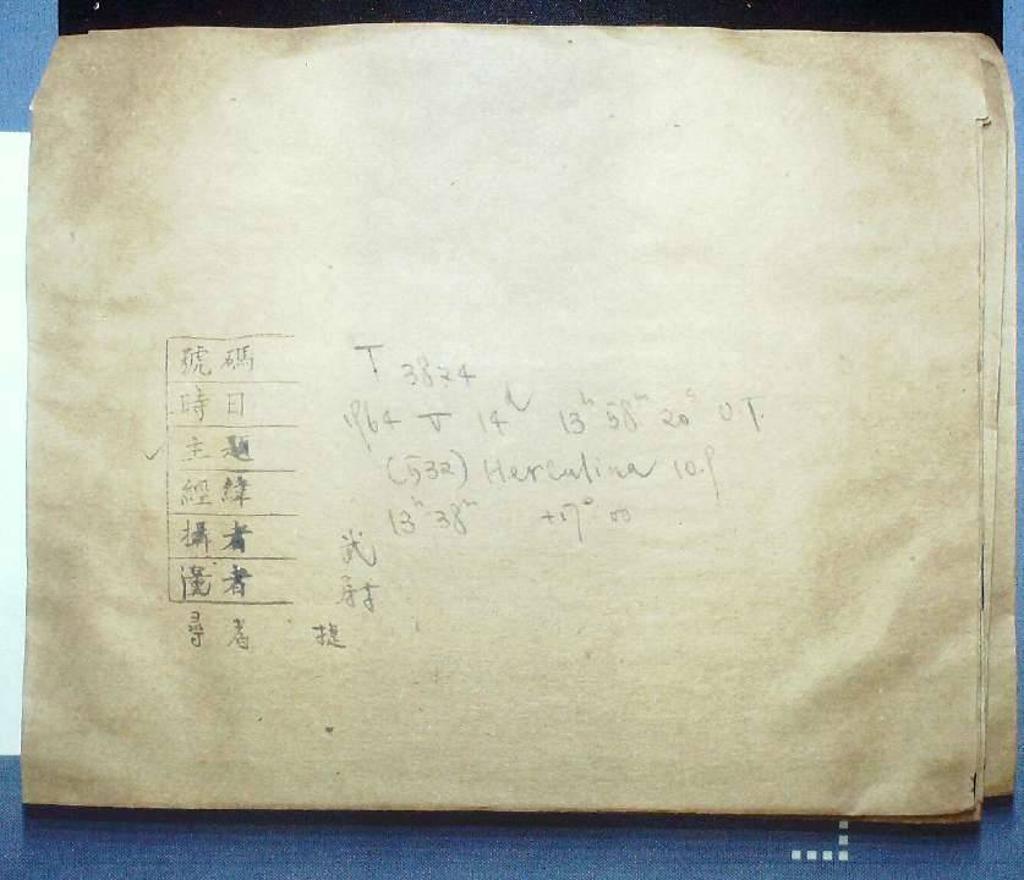 號碼 T 3824
時日 1964 V 14d 13h 58m 20s U T.
主題 (532) Herculina 10.9
經緯 13h 38m +17° 00
攝者 武
者
尋者 捷